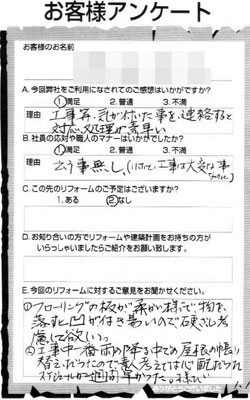 お客様アンケート
お客様のお名前
A. 今回弊社をご利用になされてのご感想はいかがですか?
①満足 2. 普通 3. 不満
理由 工事等、気が付いた事を、連絡すると
対応、処理が素早い
B. 社員の応対や職人のマナーはいかがでしたか?
①満足 2. 普通 3. 不満
理由 云う事無し、工事は大変な事
C. この先のリフォームのご予定はございますか?
1. ある ②なし
D. お知り合いの方でリフォームや建築計画をお持ちの方が
いらっしゃいましたらご紹介をお願い致します。
E. 今回のリフォームに対するご意見をお聞かせください。
①フローリングの板が柔か様で物を、
落すと凹が付き易いので硬さも考
慮して欲しい。
②工事中一番雨の降る中での屋根の張り
替えだったので素人考えでは心配だった
スケジュールが一週間早かった。様
ありがとうございました